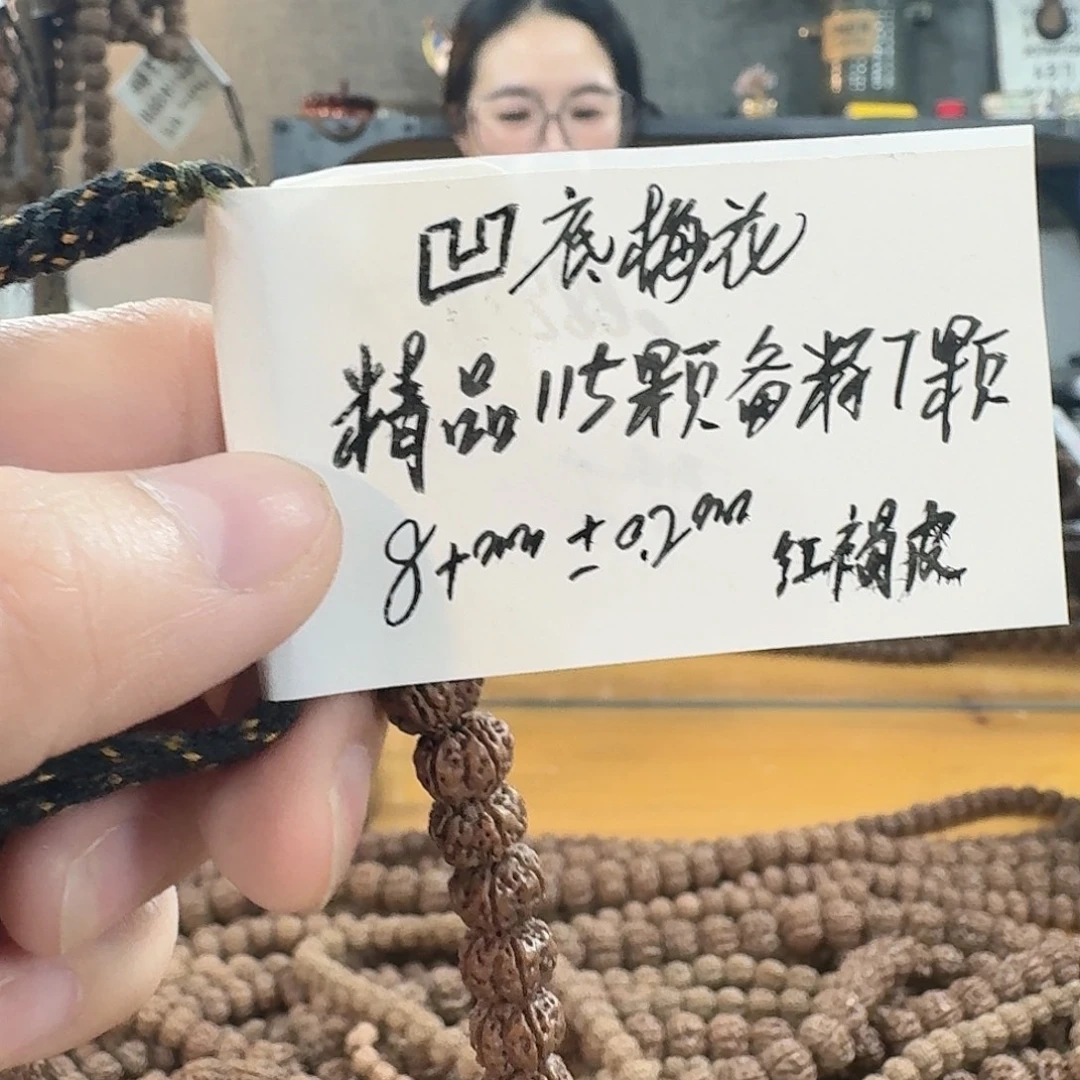 凹底梅花
精品115颗备料7颗
8+mm ± 0.2mm 红褐皮